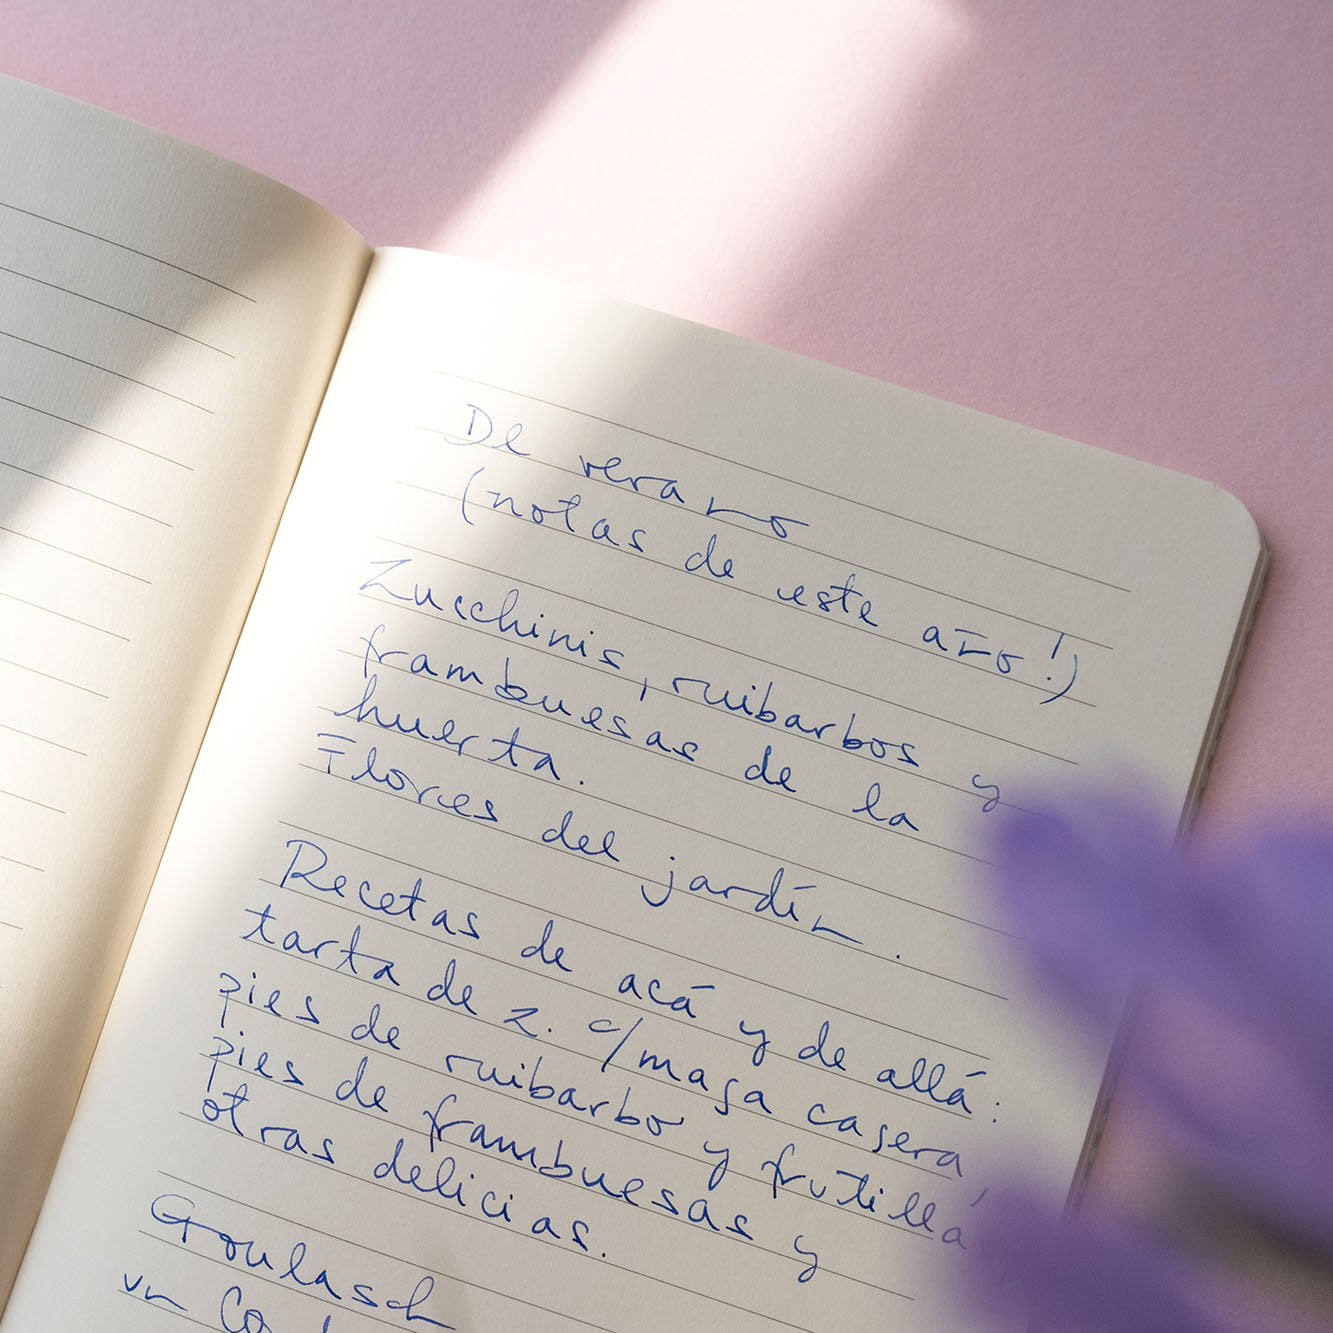 De verano
(notas de este año!)
Zucchinis, ruibarbos y
frambuesas de la
huerta.
Flores del jardín.
Recetas de acá y de allá:
tarta de z. c/masa casera,
pies de ruibarbo y frutilla
pies de frambuesas y
otras delicias.
Goulasch
un